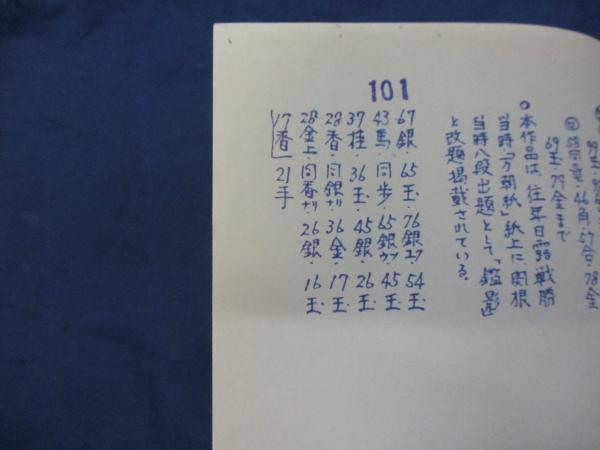 58同竜・46角・57合・78金
69玉・79金まで
○本作品は、往年日露戦勝
当時、「万朝紙」紙上に、関根
当時八段出題として、「鑑影」
と改題掲載されている。
101
67銀・65玉・76銀ユク・54玉・
43馬・同歩・65銀ウツ・45玉・
37桂・36玉・45銀・26玉・
28香・同銀ナリ・36金・17玉・
28金上・同香ナリ・26銀・16玉・
17香 21手